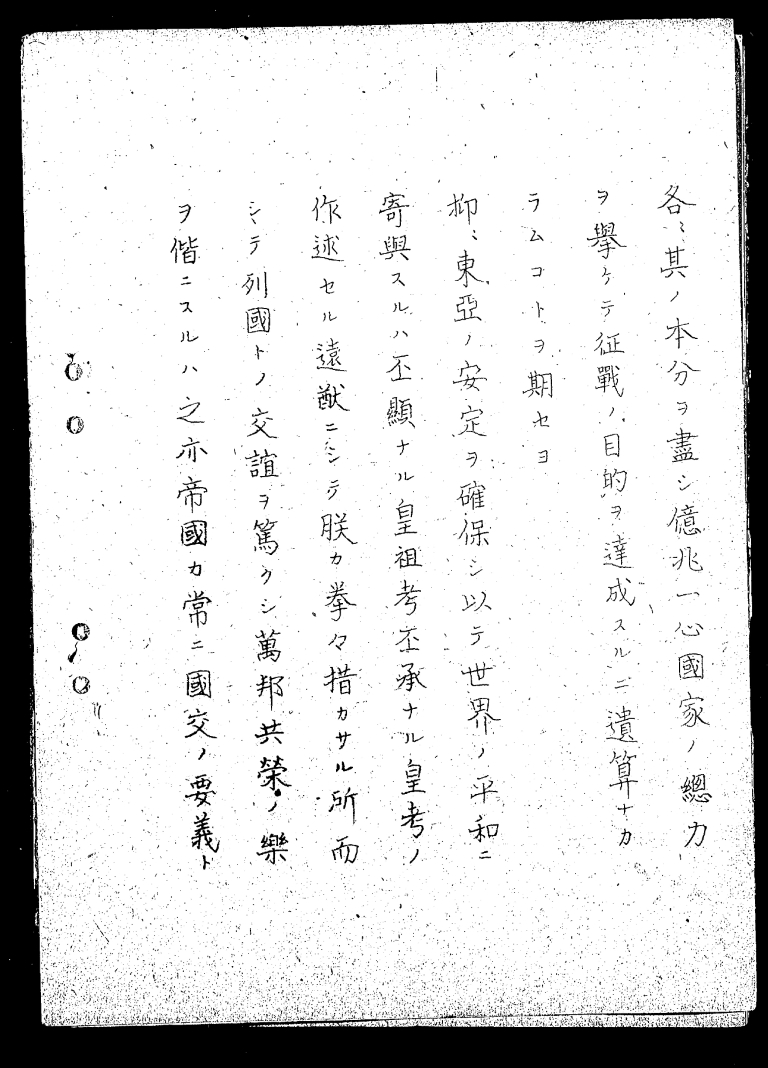 各〻其ノ本分ヲ盡シ億兆一心國家ノ總力
ヲ擧ケテ征戰ノ目的ヲ達成スルニ遺算ナカ
ラムコトヲ期セヨ
抑〻東亞ノ安定ヲ確保シ以テ世界ノ平和ニ
寄與スルハ丕顯ナル皇祖考丕承ナル皇考ノ
作述セル遠猷ニシテ朕カ拳々措カサル所而
シテ列國トノ交誼ヲ篤クシ萬邦共榮ノ樂
ヲ偕ニスルハ之亦帝國カ常ニ國交ノ要義ト